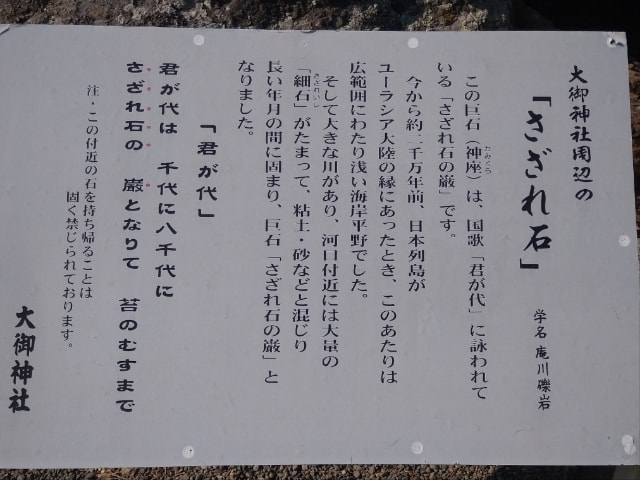 大御神社周辺の
「さざれ石」
学名 庵川礫岩
この巨石（神座）は、国歌「君が代」に詠われて
たみくら
いる「さざれ石の巌」です。
今から約二千万年前、日本列島が
ユーラシア大陸の縁にあったとき、このあたりは
広範囲にわたり浅い海岸平野でした。
そして大きな川があり、河口付近には大量の
「細石」がたまって、粘土・砂などと混じり
さざれいし
長い年月の間に固まり、巨石「さざれ石の巌」と
なりました。
「君が代」
君が代は 千代に八千代に
さざれ石の 巌となりて 苔のむすまで
注・この付近の石を持ち帰ることは
固く禁じられております。
大御神社